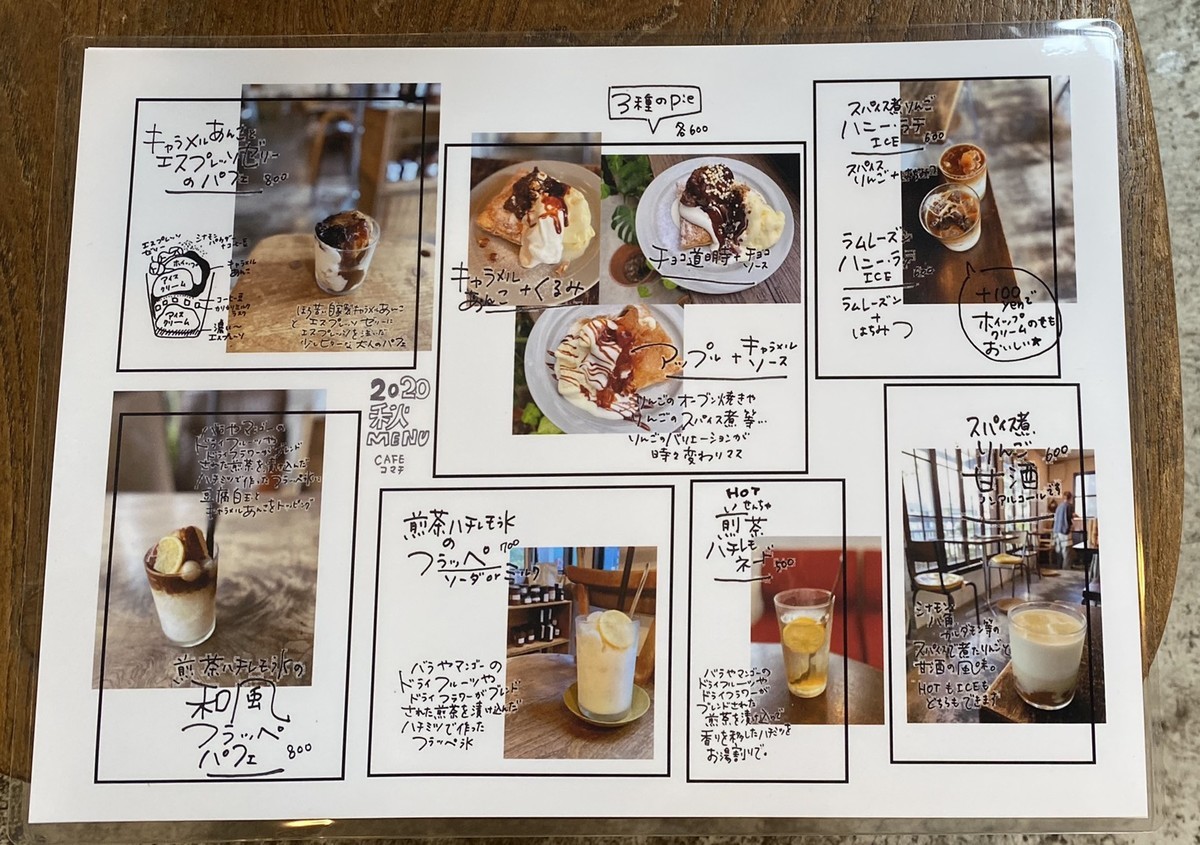 キャラメルあんこと
エスプレッソゼリー
のパフェ 800
エスプレッソ
ゼリー
ホイップ
アイス
クリーム
キャラメル
あんこ
コーヒー豆
アイス
クリーム
濃い〜
エスプレッソ
ほろ苦い自家製キャラメルあんこ
とエスプレッソゼリーに
エスプレッソを注いだ
少しビターな大人のパフェ
3種のpie
各600
キャラメル
あんこ+くるみ
チョコ道明寺+チョコ
ソース
アップル+キャラメル
ソース
りんごのオーブン焼きや
りんごのスパイス煮等…
りんごのバリエーションが
時々変わりマス
スパイス煮りんご
ハニー・ラテ
ICE 600
スパイス
りんご+はちみつ
ラムレーズン
ハニー・ラテ
ICE
ラムレーズン
+
はちみつ
+100
yenで
ホイップ
クリームのせも
おいしい★
2020
秋
MENU
CAFE
コマチ
バラやマンゴーの
ドライフルーツや
ドライフラワーがブレンド
された煎茶を漬け込んだ
ハチミツで作ったフラッペ氷に
豆腐白玉と
キャラメルあんこをトッピング
煎茶ハチレモう氷の
和風
フラッペ
パフェ 800
煎茶ハチレモう氷
の
フラッペ 700
ソーダorミルク
バラやマンゴーの
ドライフルーツや
ドライフラワーがブレンド
された煎茶を漬け込んだ
ハチミツで作った
フラッペ氷
HOT
せんちゃ
煎茶
ハチレモ
ネード 500
バラやマンゴーの
ドライフルーツや
ドライフラワーが
ブレンドされた
煎茶を漬け込んで
香りを移したハチミツを
お湯割りで。
スパイス煮
りんご
甘酒 600
ノンアルコールです
シナモン
八角
カルダモン等の
スパイスで煮たりんごと
甘酒の風味。
HOTもICEも
どちらもできます